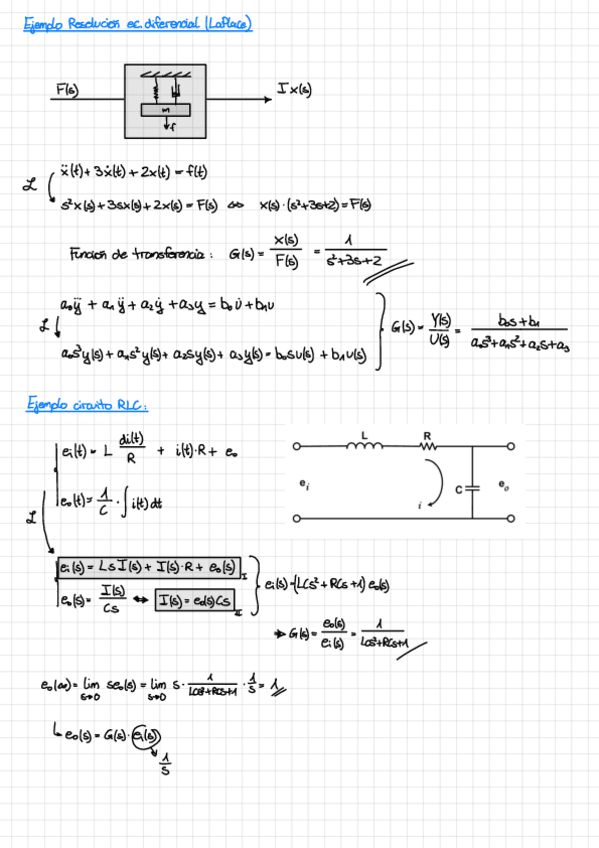 Ejemplo Resolución ec. diferencial (Laplace)
F(s)
m
f
I x(s)
ẍ(t) + 3ẋ(t) + 2x(t) = f(t)
ℒ
s²x(s) + 3sx(s) + 2x(s) = F(s) ⇔ x(s)·(s²+3s+2) = F(s)
Función de transferencia: G(s) = x(s)/F(s) = 1/(s²+3s+2)
a₀y⃛ + a₁ÿ + a₂ẏ + a₃y = b₀u̇ + b₁u
ℒ
G(s) = Y(s)/U(s) = (b₀s+b₁)/(a₀s³+a₁s²+a₂s+a₃)
a₀s³y(s) + a₁s²y(s) + a₂sy(s) + a₃y(s) = b₀su(s) + b₁u(s)
Ejemplo circuito RLC:
eᵢ(t) = L di(t)/R + i(t)·R + e₀
e₀(t) = 1/C · ∫ i(t) dt
L
R
eᵢ
C
eₒ
i
ℒ
eᵢ(s) = LsI(s) + I(s)·R + e₀(s) I
e₀(s) = I(s)/Cs ⇔ I(s) = e₀(s)Cs II
eᵢ(s) = (LCs² + RCs + 1) e₀(s)
⇒ G(s) = e₀(s)/eᵢ(s) = 1/(LCs²+RCs+1)
e₀(∞) = lim s→0 se₀(s) = lim s→0 s · 1/(LCs²+RCs+1) · 1/s = 1
↳ e₀(s) = G(s) · eᵢ(s)
1/s